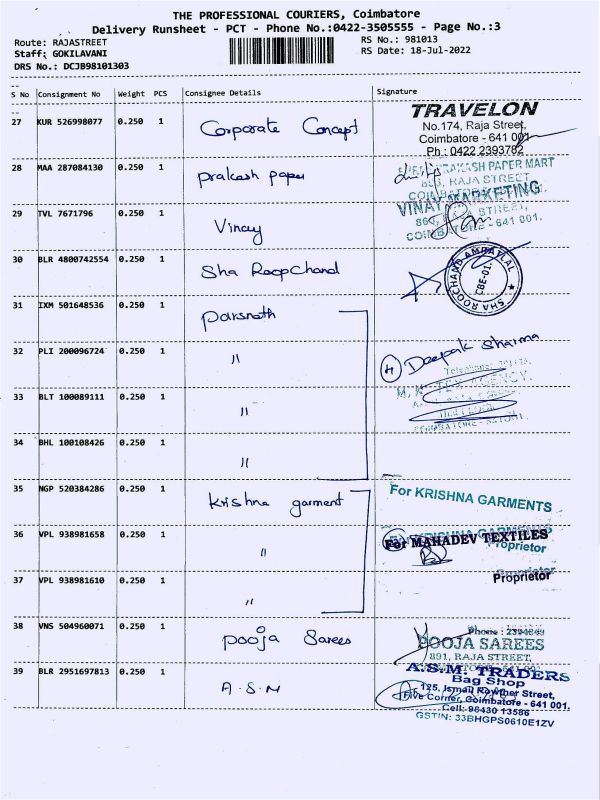 THE PROFESSIONAL COURIERS, Coimbatore
Delivery Runsheet - PCT - Phone No.:0422-3505555 - Page No.:3
Route: RAJASTREET
RS No.: 981013
Staff: GOKILAVANI
RS Date: 18-Jul-2022
DRS No.: DCJB98101303
S No Consignment No Weight PCS Consignee Details Signature
27 KUR 526998077 0.250 1 Corporate Concept
TRAVELON
No.174, Raja Street,
Coimbatore - 641 001
Ph : 0422 2393782
28 MAA 287084130 0.250 1 prakash paper
PRAKASH PAPER MART
RAJA STREET
29 TVL 7671796 0.250 1 Vinay
VINAY MARKETING
STREET,
COIMBATORE - 641 001.
30 BLR 4800742554 0.250 1 Sha RoopChand
SHA ROOPCHAND AMRATLAL
CBE-01.
31 IXM 501648536 0.250 1 parsnath
32 PLI 200096724 0.250 1 "
4 Deepak Sharma
33 BLT 100089111 0.250 1 "
34 BHL 100108426 0.250 1 "
35 NGP 520384286 0.250 1 Krishna garment
For KRISHNA GARMENTS
36 VPL 938981658 0.250 1 "
For MAHADEV TEXTILES
Proprietor
37 VPL 938981610 0.250 1 "
Proprietor
38 VNS 504960071 0.250 1 pooja Sarees
Phone : 2394849
POOJA SAREES
891, RAJA STREET,
39 BLR 2951697813 0.250 1 A.S.M
A.S.M. TRADERS
Bag Shop
125, Ismail Rowther Street,
Five Corner, Coimbatore - 641 001.
Cell: 98430 13586
GSTIN: 33BHGPS0610E1ZV